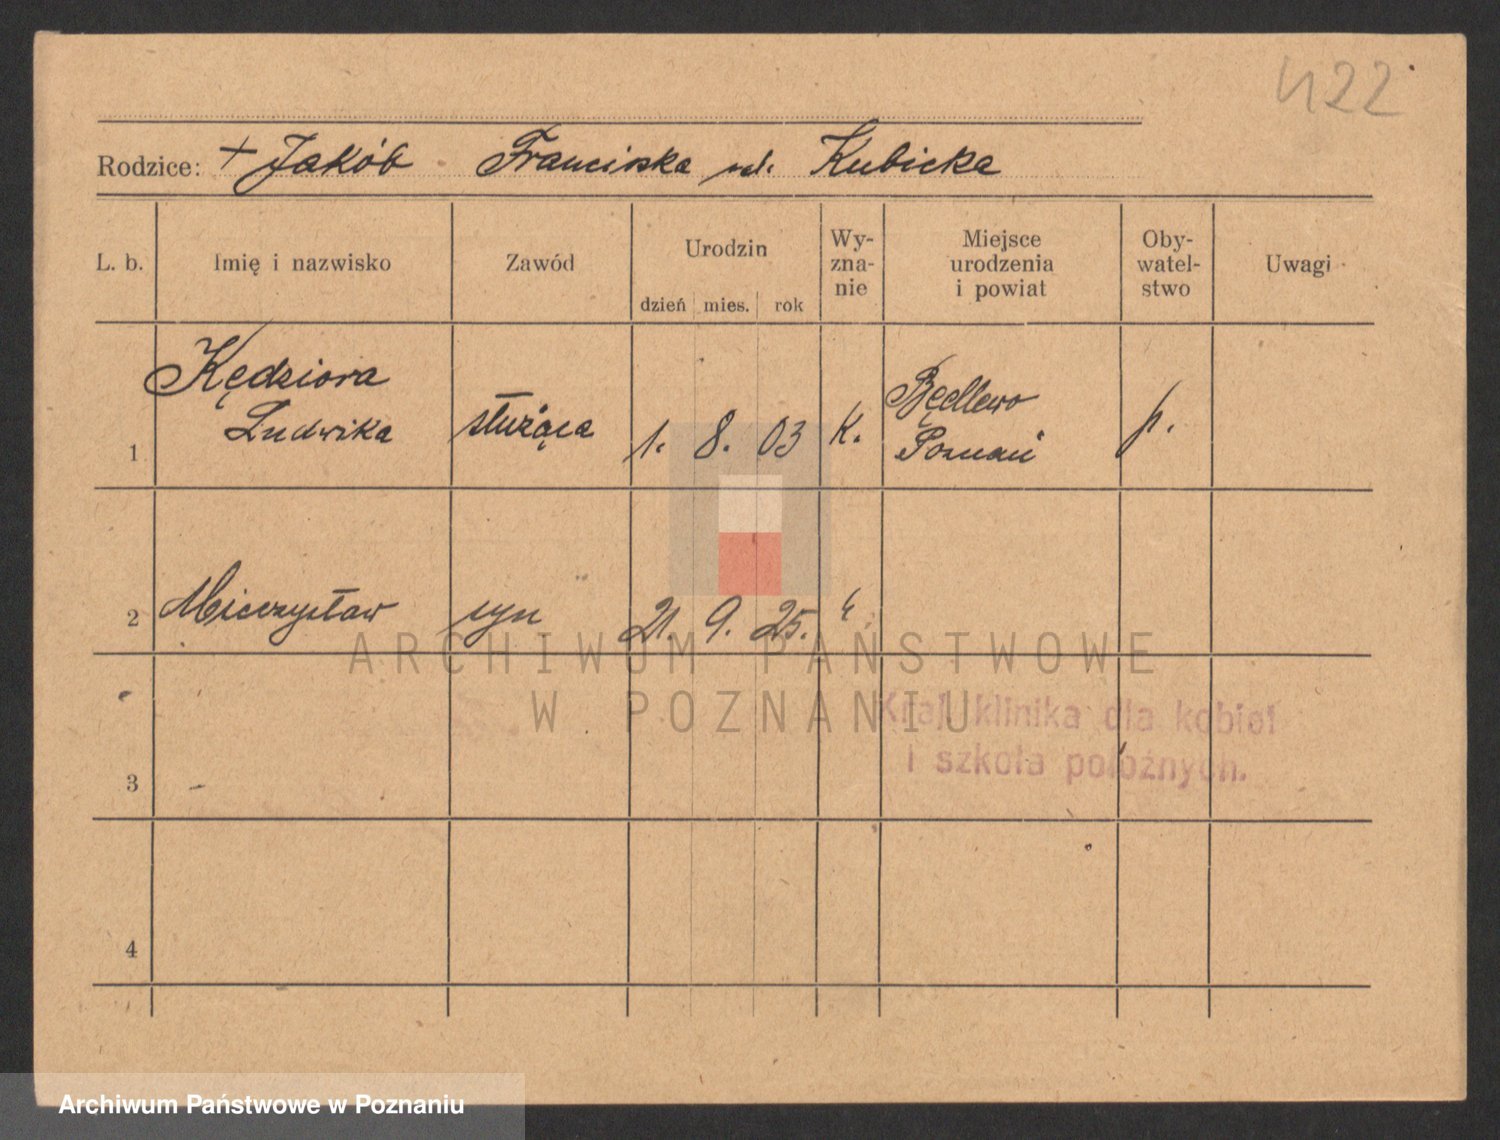 422
Rodzice: + Jakób Franciszka Kubicka
L. b. Imię i nazwisko Zawód Urodzin Wy-zna-nie Miejsce urodzenia i powiat Oby-watel-stwo Uwagi
dzień mies. rok
Kędziora
1 Ludwika służąca 1. 8. 03 k. Będlewo p.
Poznań
2 Mieczysław syn 21. 9. 25. k.
ARCHIWUM PAŃSTWOWE
W POZNANIU
Kraj. klinika dla kobiet
i szkoła położnych.
3
4
Archiwum Państwowe w Poznaniu